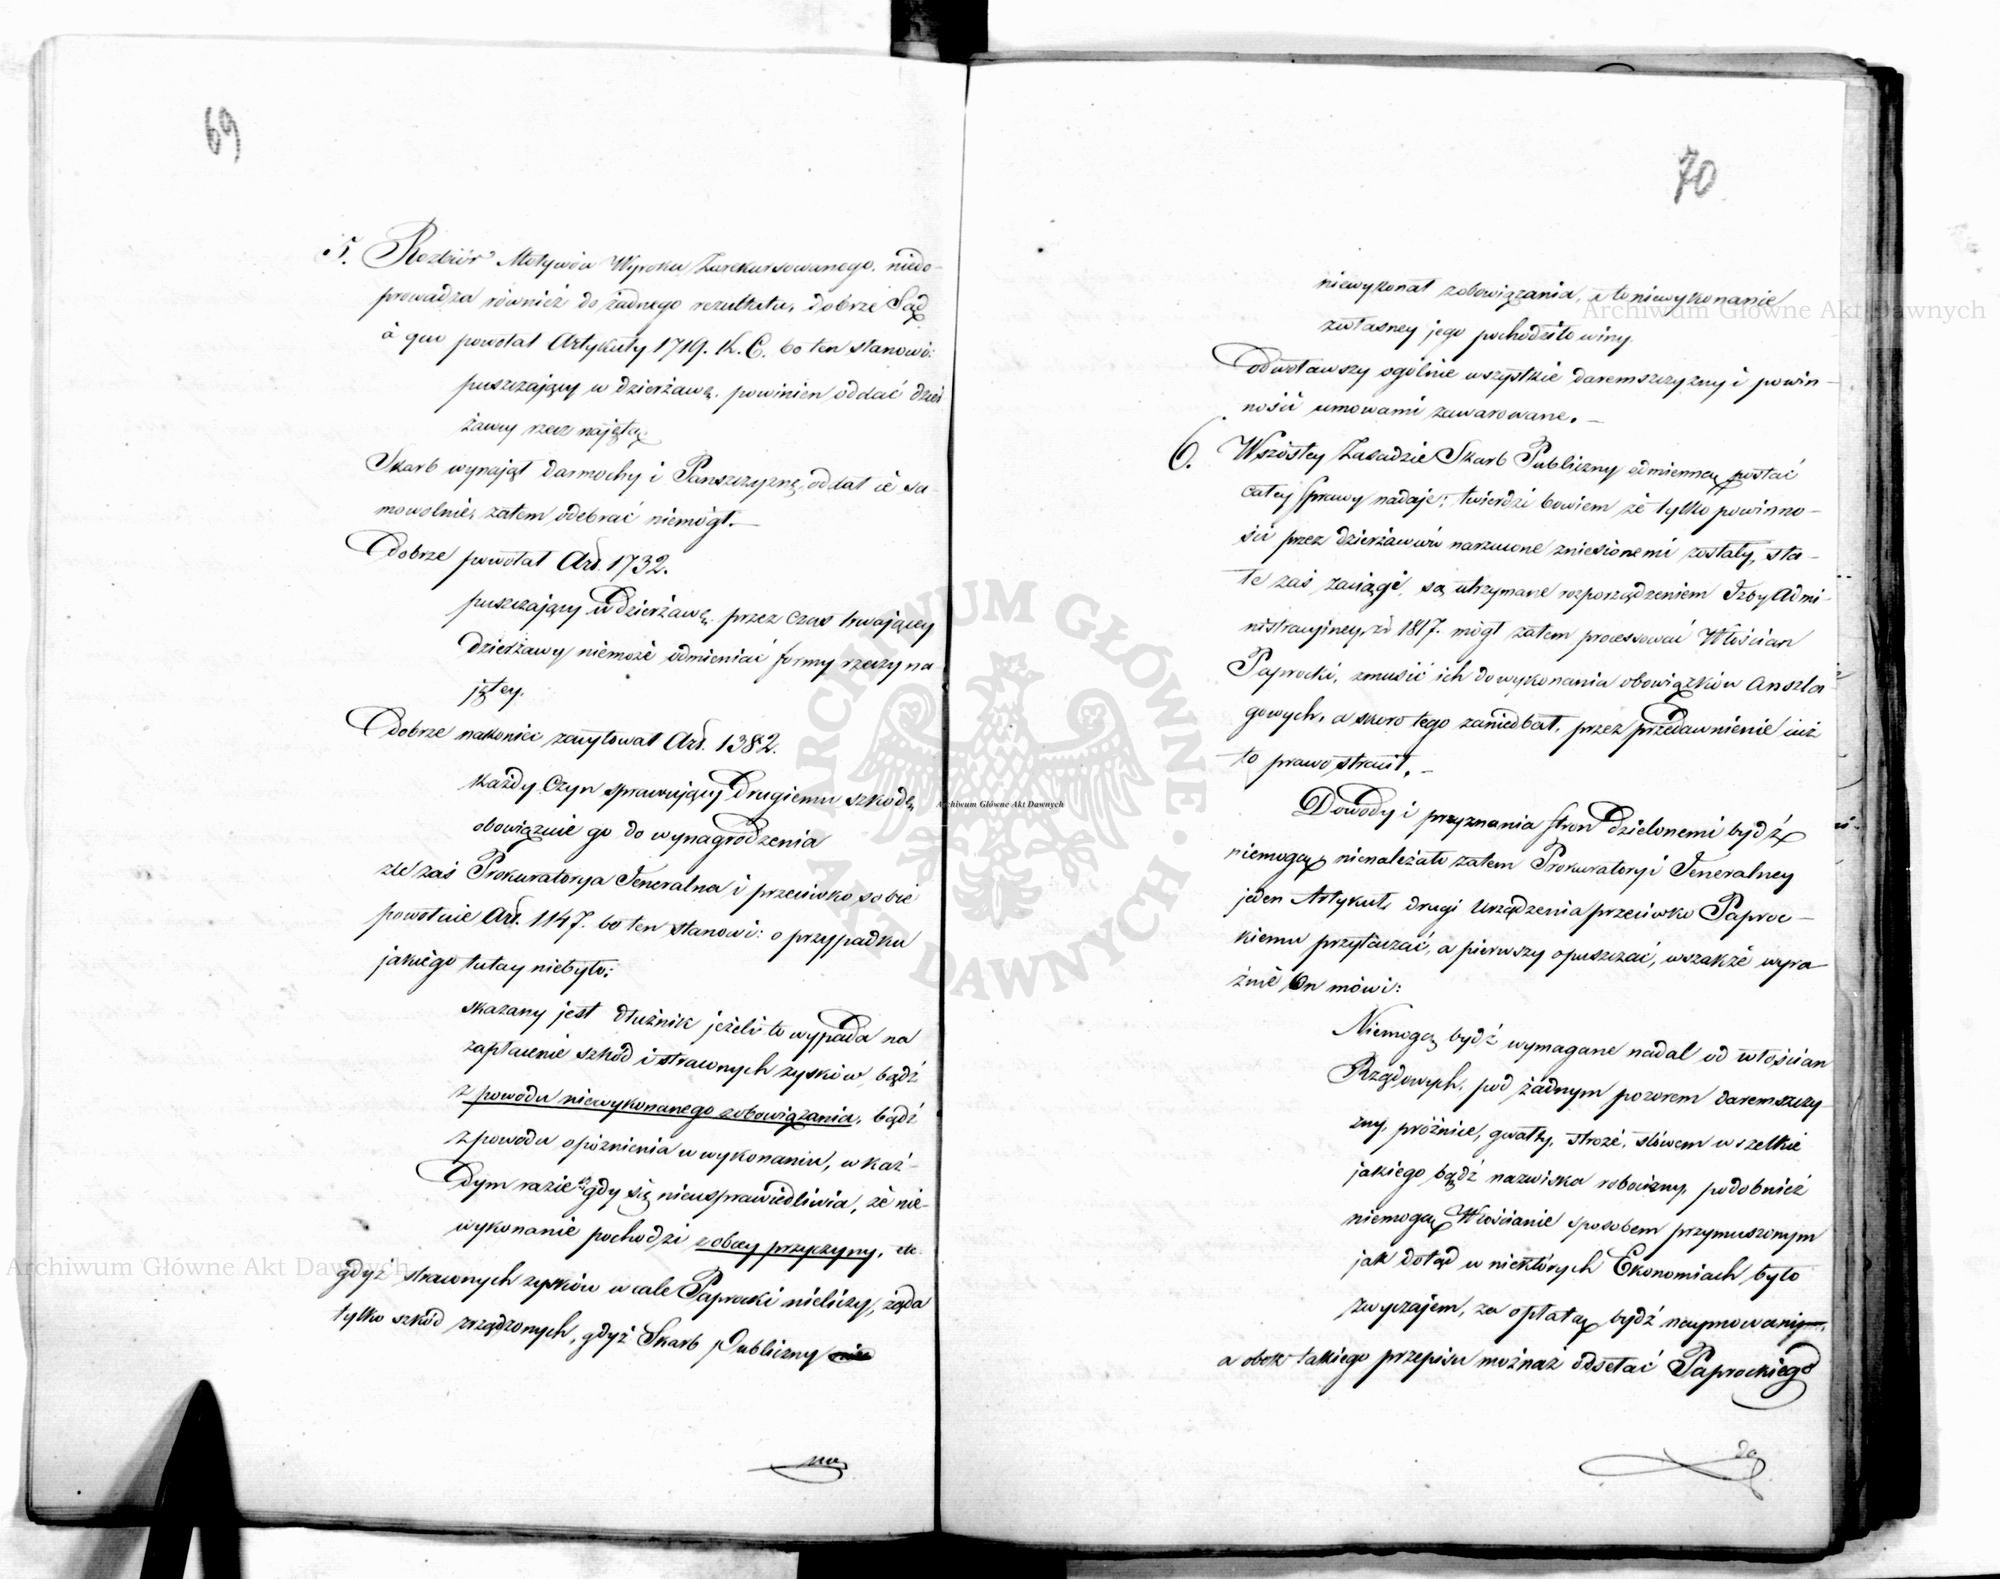 69
5. Rozbiór Motywów Wyroku Zarekursowanego, niedo-
prowadza również do żadnego rezultatu, dobrze Sąd
à quo powołał Artykuły 1719. K. C. bo ten stanowi:
puszczający w dzierżawę, powinien oddać dzier
żawcy rzecz najętą
Skarb wynajął darmochy i Pańszczyznę, oddał je sa-
mowolnie, zatem odebrać niemógł. —
Dobrze powołał Art. 1732.
puszczający w dzierżawę, przez czas trwającey
Dzierżawy niemoże odmieniać formy rzeczy na-
jętey.
Dobrze nakoniec zacytował Art. 1382.
każdy Czyn sprawujący Drugiemu szkodę,
obowiązuie go do wynagrodzenia
zle zaś Prokuratorya Jeneralna i przeciwko sobie
powołuie Art. 1147. bo ten stanowi: o przypadku
jakiego tutay niebyło:
skazany jest dłużnik jeżeli to wypada na
zapłacenie szkód i straconych zysków, bądź
z powodu niewykonanego zobowiązania, bądź
z powodu opóźnienia w wykonaniu, w każ-
dym razie gdy się nieusprawiedliwia, że nie-
wykonanie pochodzi z obcey przyczyny, etc.
gdyż straconych zysków wcale Paprocki nieliczy, żąda
tylko szkód zrządzonych, gdyż Skarb Publiczny
nie
70
niewykonał zobowiązania, a to niewykonanie
zwłasney jego pochodziło winy.
Odwoławszy ogólnie wszystkie daremszczyzny i powin-
ności umowami zawarowane. —
6. W szóstey Zasadzie Skarb Publiczny odmienną postać
całey sprawy nadaje; twierdzi bowiem że tylko powinno-
ści przez dzierżawców narzucone zniesionemi zostały, sta-
łe zaś zaciągi, są utrzymane rozporządzeniem Izby Admi-
nistracyiney, z r. 1817. mógł zatem processować Włościan
Paprocki, zmusić ich do wykonania obowiązków Anszla-
gowych, a skoro tego zaniedbał, przez przedawnienie już
to prawo stracił. —
Dowody i przyznania stron dzielonemi bydź
niemogą, nienależało zatem Prokuratoryi Jeneralney
jeden Artykuł, drugi Urządzenia przeciwko Paproc-
kiemu przytaczać, a pierwszy opuszczać, wszakże wyra-
źnie On mówi:
Niemogą bydź wymagane nadal od włościan
Rządowych, pod żadnym pozorem daremszczy-
zny, próżnice, gwałty, stroże, słowem wszelkie
jakiego bądź nazwiska robocizny, podobnież
niemogą Włościanie sposobem przymuszonym
jak dotąd w niektórych Ekonomiach było
zwyczajem, za opłatą bydź naymowani,
a obok takiego przepisu możnaż odsełać Paprockiego
do
Archiwum Główne Akt Dawnych
Archiwum Główne Akt Dawnych
Archiwum Główne Akt Dawnych
ARCHIWUM GŁÓWNE AKT DAWNYCH